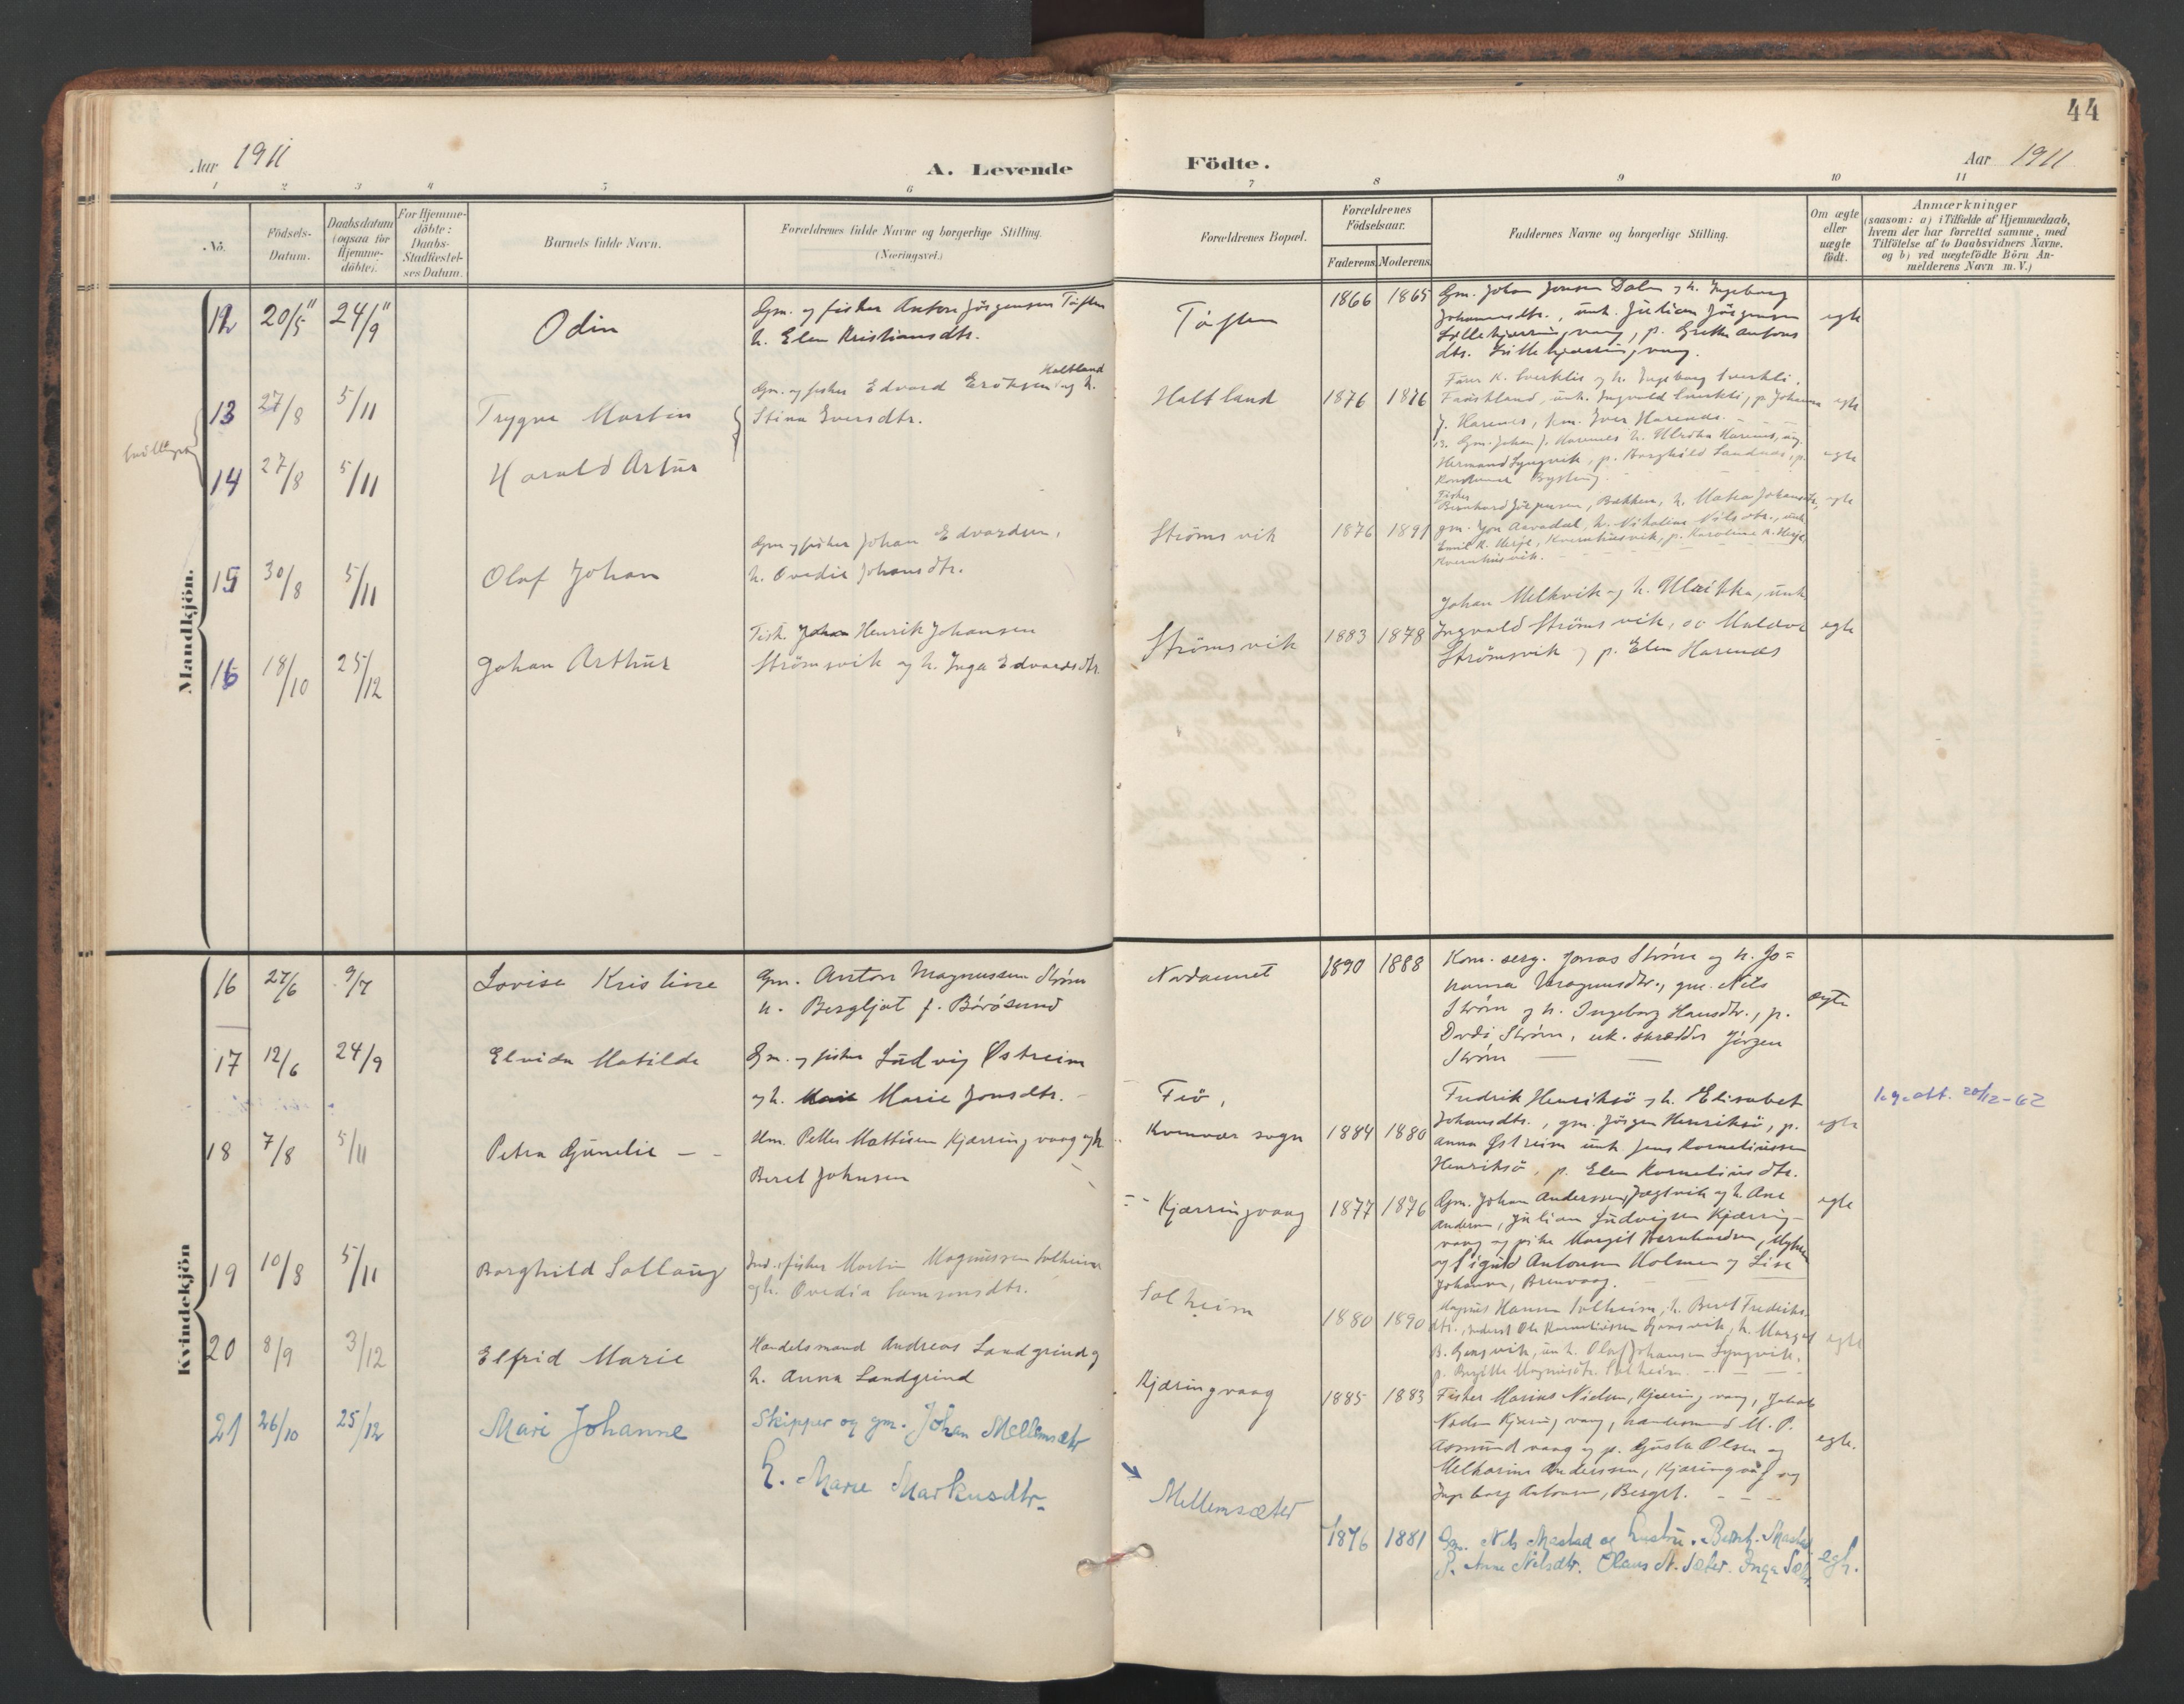 44
Aar 1911
A. Levende
Födte.
Aar 1911
1 2 3 4 5 6 7 8 9 10 11
No.
Födsels-
Datum.
Daabsdatum
(ogsaa for
Hjemme-
döbte).
For Hjemme-
döbte:
Daabs-
Stadfæstel-
ses Datum.
Barnets fulde Navn.
Forældrenes fulde Navne og borgerlige Stilling.
(Næringsvei.)
Forældrenes Bopæl.
Forældrenes
Födselsaar.
Faderens. Moderens.
Faddernes Navne og borgerlige Stilling.
Om ægte
eller
uægte
födt.
Anmærkninger
(saasom: a) i Tilfælde af Hjemmedaab,
hvem der har forrettet samme, med
Tilföielse af to Daabsvidners Navne.
og b) ved uægtefödte Börn An-
melderens Navn m. V.)
Mandkjön.
12 20/5 11 24/9 11 Odin
Gm. og fisker Anton Jörgensen Töften
h. Elen Kristiansdtr.
Töften 1866 1865
Gm. Johan Jensen Dalen og h. Ingeborg
Johannesdtr., unk. Julian Jörgensen
Lillekjærringvaag, p. Grethe Antons
dtr. Lillekjærringvaag.
egte
13 27/8 5/11 Trygve Martin
Gm. og fisker Edvard Eriksen og h.
Haltland
Stina Iversdtr.
Haltland 1876 1876
K. Sverkli og h. Ingeborg Sverkli,
unk. Ingvald Sverkli, p. Johanna
J. Havenes, Iver Havenes.
egte
14 27/8 5/11 Harald Artur
Gm. Johan J. Havenes h. Havenes,
Hermand Lyngvik, p. Borghild Sandnes, p.
egte
15 30/8 5/11 Olaf Johan
Gm og fisker Johan Edvardsen,
h. Ovedie Johansdtr.
Strömsvik 1876 1891
Fisker
Bernhard Bækken, h. Johansdtr,
gm. Jon Aavadal, h. Nikoline Nilsdtr., unk
Emil K. Herje, Kvernhusvik, p. Karoline K. Herje,
Kvernhusvik.
egte
16 18/10 25/12 Johan Arthur
Fisk. Henrik Johansen
Strömsvik og h. Inga Edvardsdtr.
Strömsvik 1883 1878
Johan Melkvik og h. Ulrikka, unk
Ingvald Strömsvik, og
Strömsvik og p. Elen Havenes
egte
Kvindekjön
16 27/6 9/7 Lovise Kristine
Gm. Anton Magnussen Ström
h. Bergljot f. Börösund
Nordannet 1890 1888
Kom. serg. Jonas Ström og h. Jo=
hanna Magnusdtr., gm. Nils
Ström og h. Ingeborg Hansdtr., p.
Dordi Ström, uk. skrædder Jörgen
Ström
ægte
17 12/6 24/9 Elvida Matilde
Gm. og fisker Ludvig Østreim
og h. Marie Jonsdtr.
Fiö,
Kvenvær sogn 1884 1880
Fredrik Henriksö og h. Elisabet
Johansdtr., gm. Jörgen Henriksö, p.
Anna Østreim unk Jens Korneliussen
Henriksö, p. Elen Korneliusdtr.
egte
20/12-62
18 7/8 5/11 Petra Gunelie
Um. Petter Mathisen Kjærringvaag og h
Beret Johnsen
Kjærringvaag 1877 1876
Gm. Johan Anderssen, Jægtvik og h. Ane
Andersen, Julian Ludvigsen Kjærring-
vaag og pike Margit Bernhardsen,
og Sigurd Antonsen Holmen og Lise
Johansen, Brenvaag.
egte
19 10/8 5/11 Borghild Solbaug
Ind. fisker Martin Magnussen Solheim
og h. Ovedia Samsonsdtr.
Solheim 1880 1890
Magnus Hansen Solheim, h. Beret Fredriks
dtr., Inderst Ole Korneliussen Gjængsvik, h. Margit
B. Gjængsvik, unk. Olaf Johansen Lyngvik,
p. Birgitte Magnusdtr. Solheim
egte
20 8/9 3/12 Elfrid Marie
Handelsmand Andreas Landgrind og
h. Anna Landgrind
Kjæringvaag 1885 1883
Fisker Marius Nielsen, Kjæringvaag, Jakob
Nielsen Kjæringvaag, handelsmand M. P.
Asmundvaag og p. Gusta Olsen og
Melkarine Anderssen, Kjæringvåg og
Ingeborg Antonsen, Berget.
egte.
21 26/10 25/12 Mari Johanne
Skipper og gm. Johan Mellemsæter
h. Marie Markusdtr.
Mellemsæter 1876 1881
Gm. Nils Mastad og hustru Mastad
P. Anne Nilsdtr. Olaus N. Sæter. Inga Sæter.
egte.